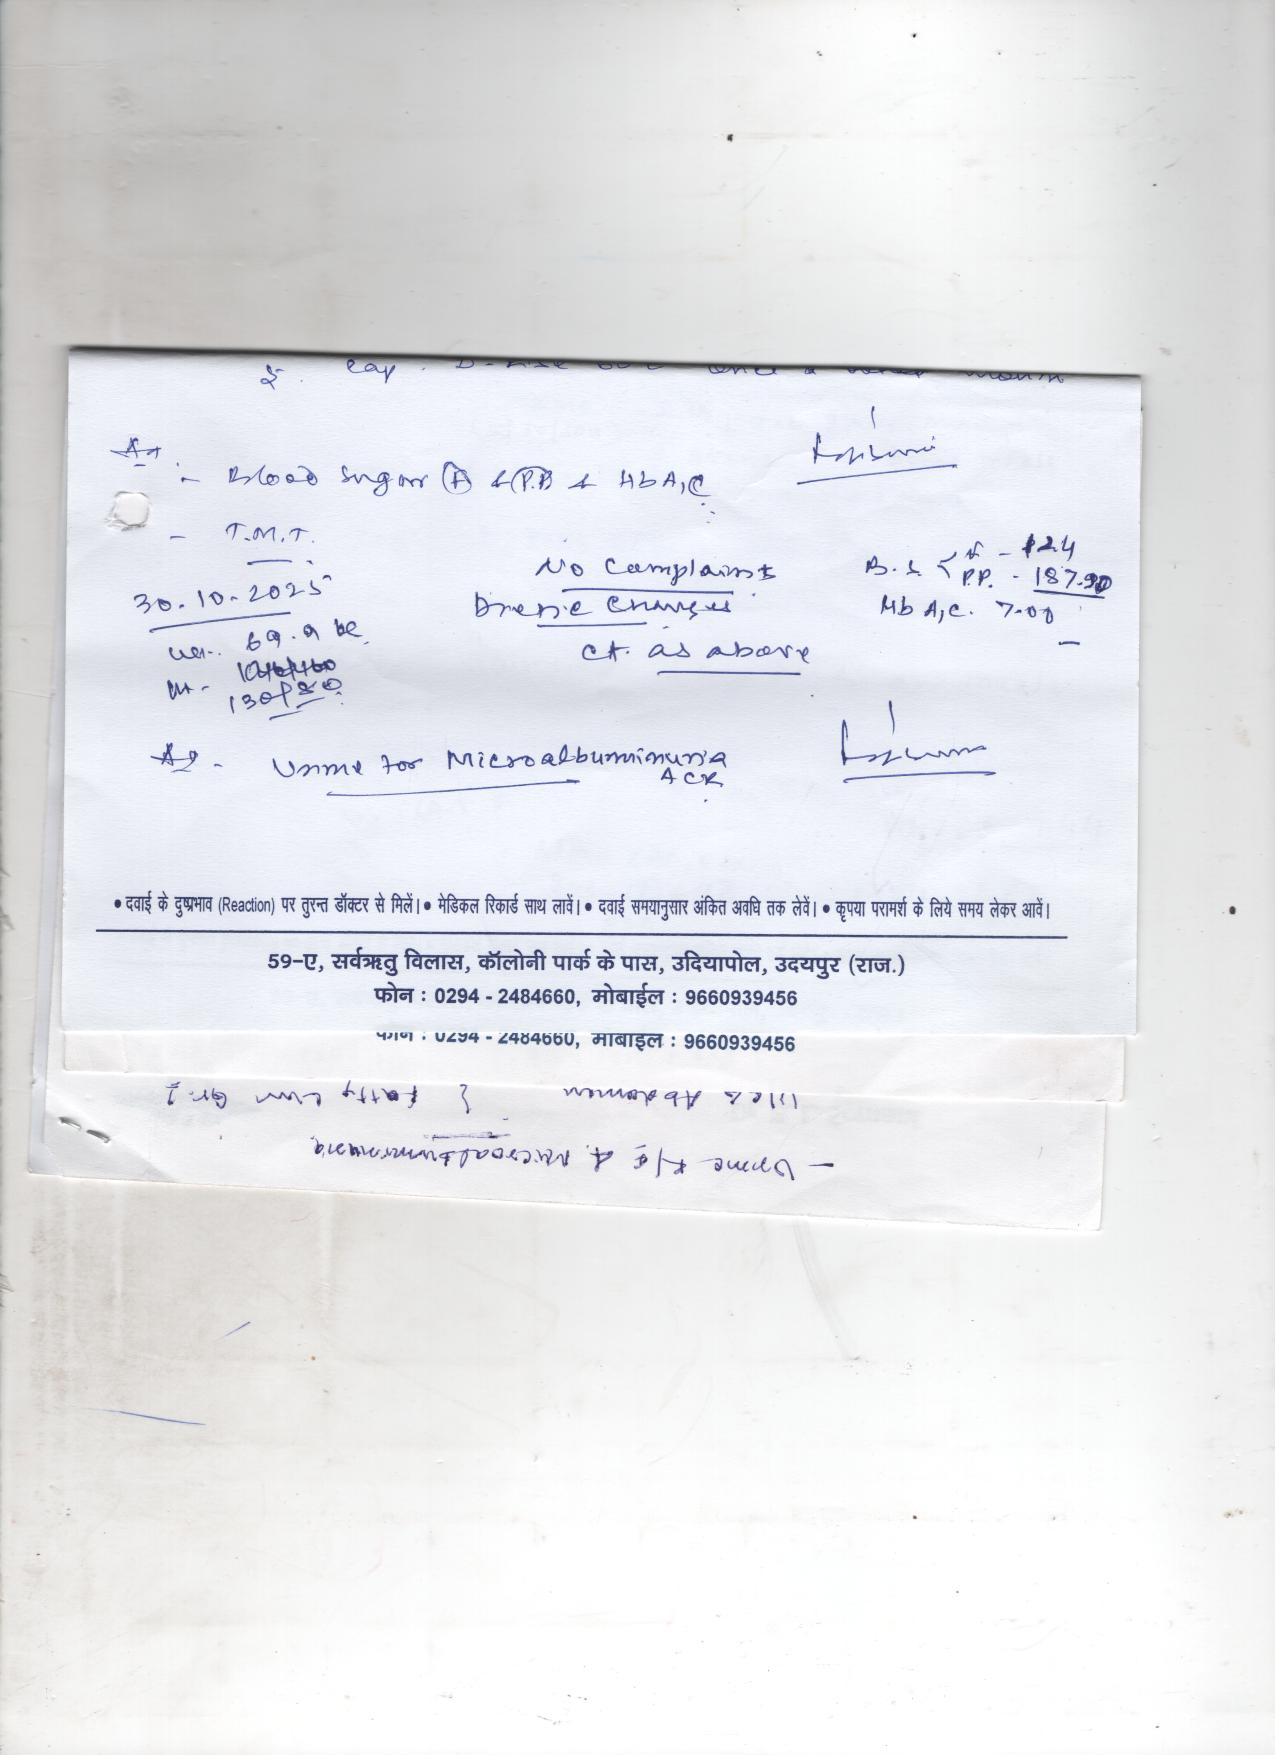 5. Cap. D-Rise once a month
Adv
- Blood Sugar (F) & (P.P) & HbA1C
- T.M.T.
30.10.2025
No Complaints
B.S. < F - 124
P.P. - 187.90
HbA1C. 7.00
wt. 69.9 kg
130/80
Ct. as above
Adv - Urine for Microalbuminuria
ACR
• दवाई के दुष्प्रभाव (Reaction) पर तुरन्त डॉक्टर से मिलें। • मेडिकल रिकार्ड साथ लावें। • दवाई समयानुसार अंकित अवधि तक लेवें। • कृपया परामर्श के लिये समय लेकर आवें।
59-ए, सर्वऋतु विलास, कॉलोनी पार्क के पास, उदियापोल, उदयपुर (राज.)
फोन : 0294 - 2484660, मोबाईल : 9660939456
फोन : 0294 - 2484660, मोबाइल : 9660939456
- Urine R/E & Microalbuminuria
Abdomen } Fatty Liver Gr. I